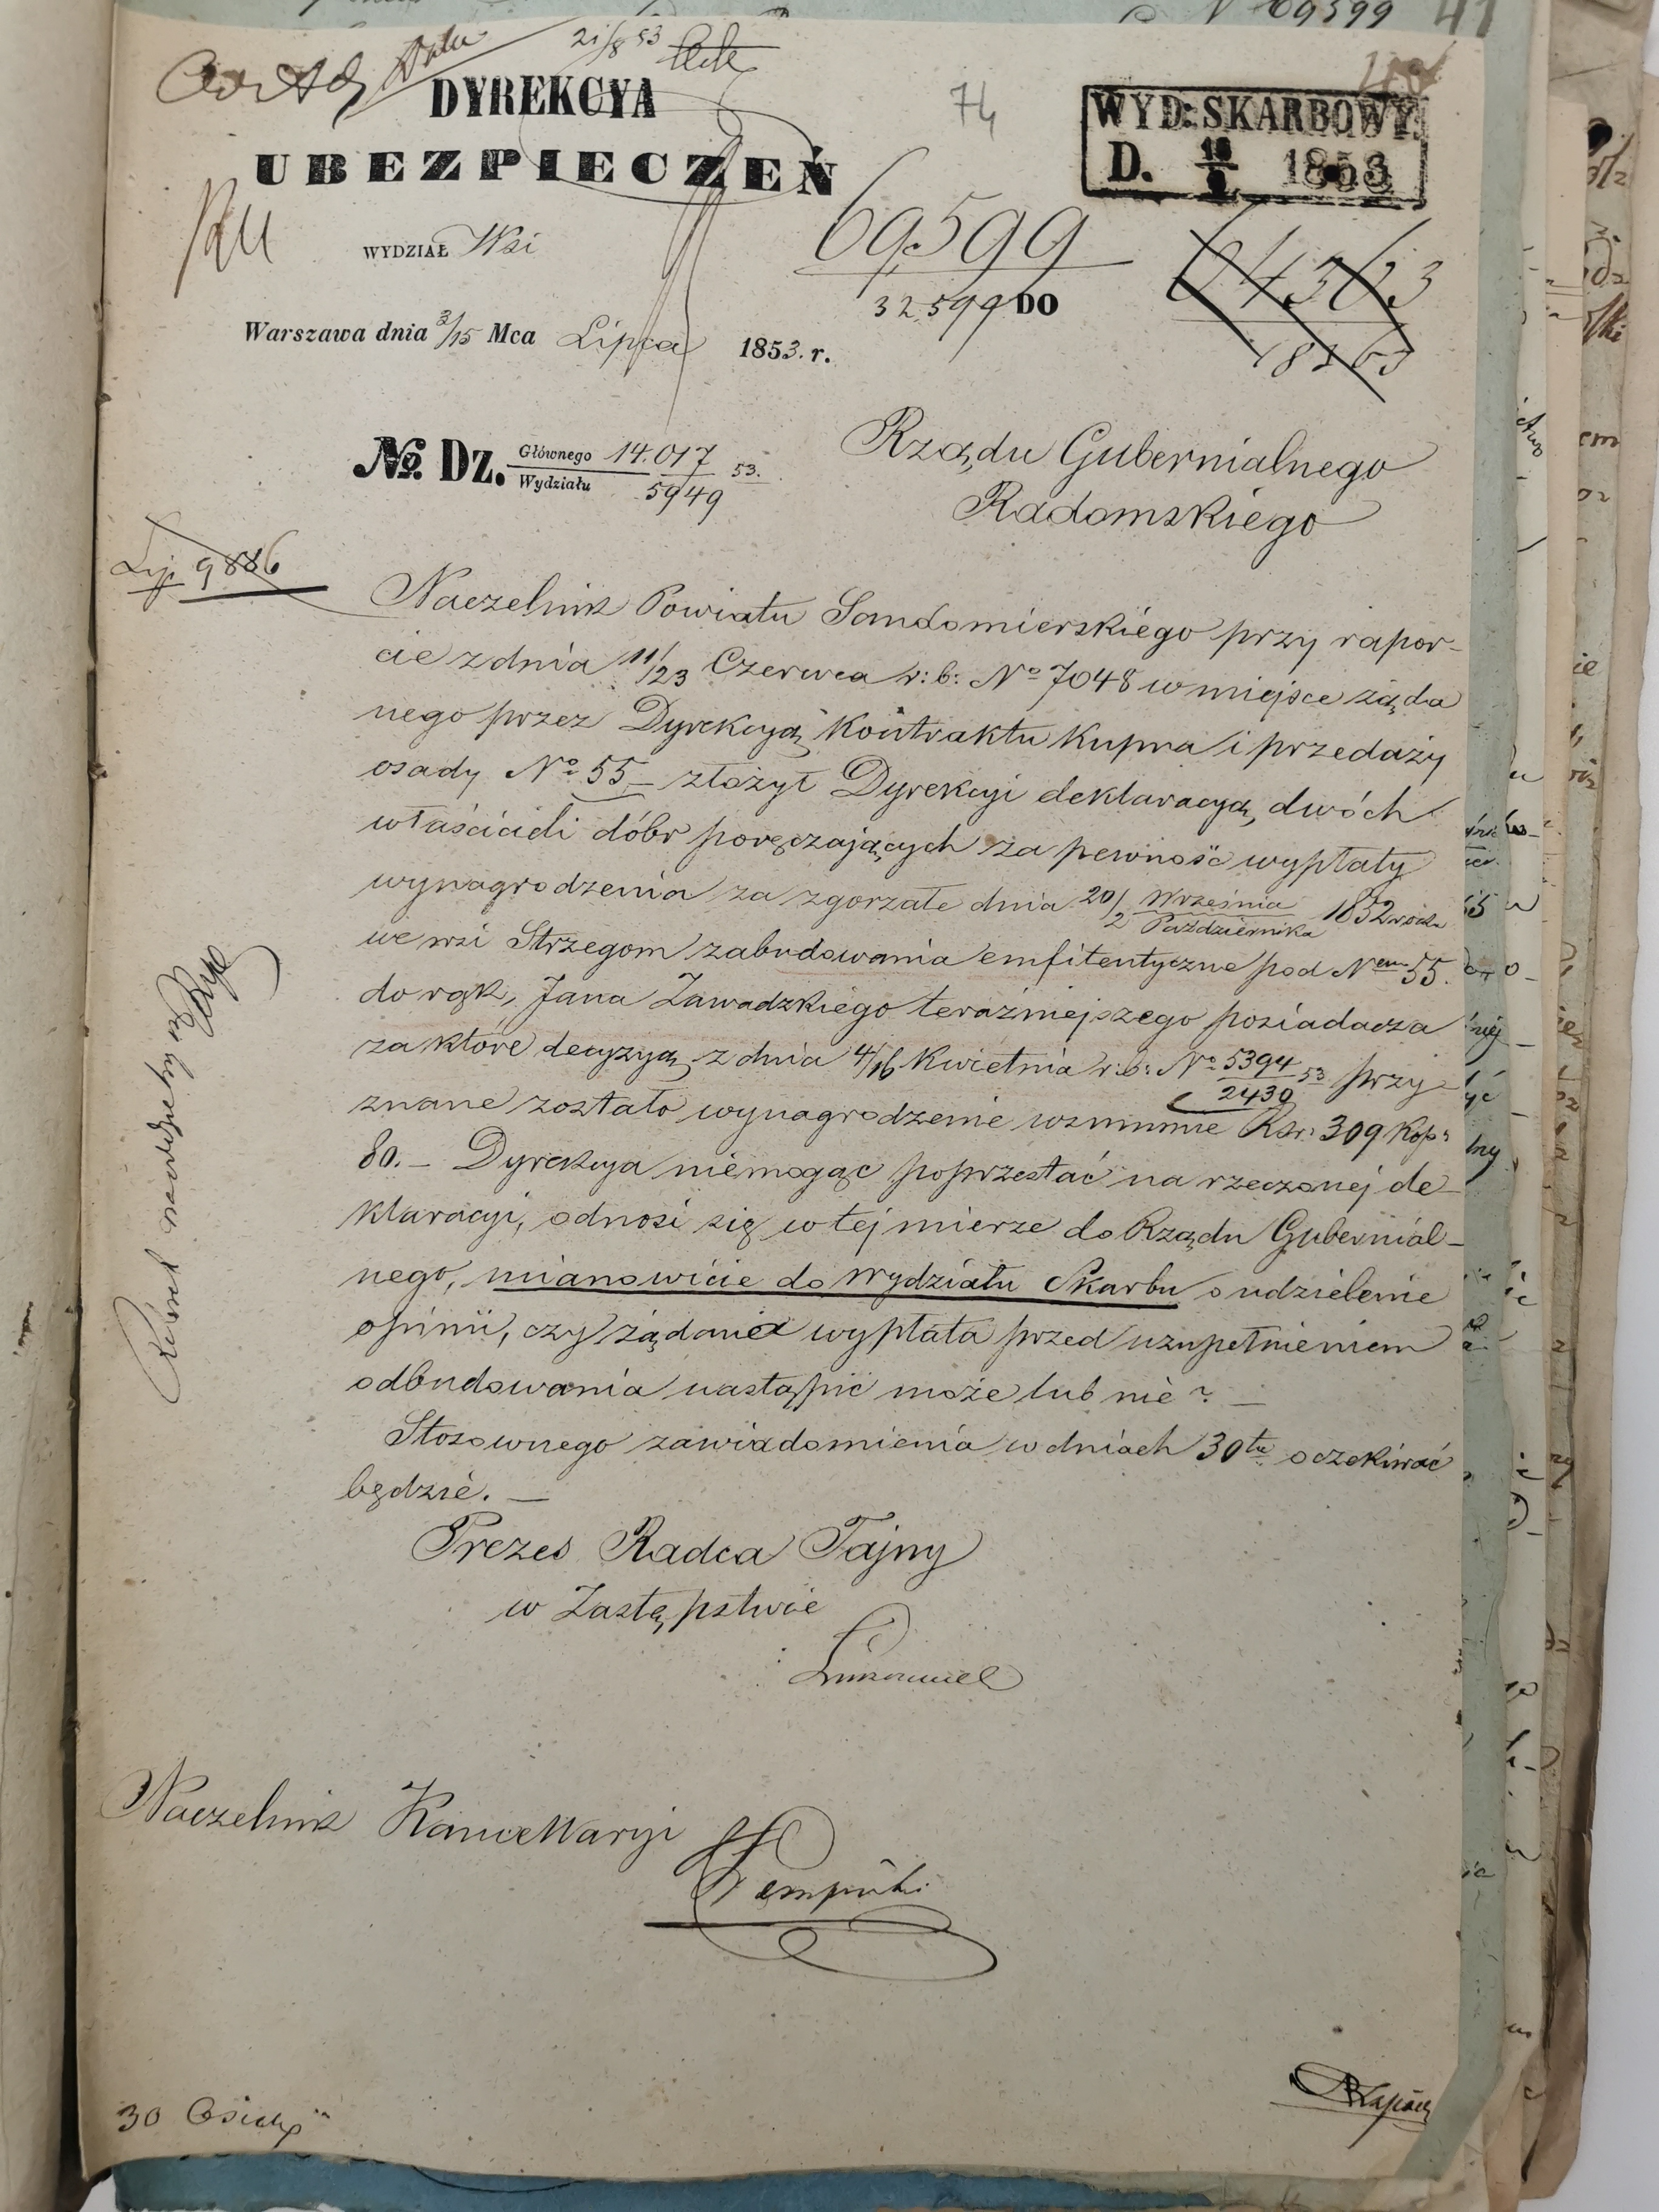 No 69599 41
21/8 53
DYREKCYA
UBEZPIECZEŃ
74
WYD: SKARBOWY.
D. 1853
WYDZIAŁ Wsi
69,599
32599 DO
64363
18363
Warszawa dnia 3/15 Mca Lipca 1853. r.
No. Dz. Głównego 14.017 / Wydziału 5949 53.
Rządu Gubernialnego
Radomskiego
9886
Naczelnik Powiatu Sandomierskiego przy rapor-
cie z dnia 11/23 Czerwca r: b: No 7048 w miejsce żąda
nego przez Dyrekcyą kontraktu kupna i przedaży
osady No 55 – złożył Dyrekcyi deklaracyą, dwóch
właścicieli dóbr poręczających za pewność wypłaty
wynagrodzenia za zgorzałe dnia 20/2 Września/Października 1852 roku
we wsi Strzegom zabudowania emfiteutyczne pod Nem 55.
do rąk, Jana Zawadzkiego teraźniejszego posiadacza
za które decyzyą z dnia 4/16 Kwietnia r: b: No 5394/2439 53 przy-
znane zostało wynagrodzenie w summie Rsr: 309 kop:
80. – Dyrekcya niemogąc poprzestać na rzeczonej de-
klaracyi, odnosi się w tej mierze do Rządu Gubernial-
nego, mianowicie do Wydziału Skarbu o udzielenie
opinii, czy żądana wypłata przed uzupełnieniem
odbudowania nastąpić może lub nie? –
Stosownego zawiadomienia w dniach 30tu oczekiwać
będzie. –
Prezes Radca Tajny
w Zastępstwie
Naczelnik Kancellaryi
30